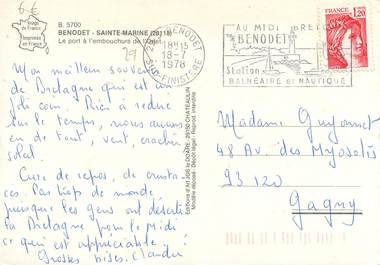 6.€
Image
de France
Imprimée en
France
B. 5700
BENODET - SAINTE-MARINE (29118)
Le port à l'embouchure de l'Odet
29
29 BENODET
18H15
18-7
1978
SUD-FINISTERE
AU MIDI BRETON
BENODET
Station
BALNÉAIRE et NAUTIQUE
1,20
Mon meilleur souvenir
de Bretagne qui est un
joli coin. Rien à redire
sur le temps, nous avons
eu de tout, vent, crachin
soleil.
Cure de repos, de crusta-
cés. Pas trop de monde
puisque les gens ont déserté
la Bretagne pour le Midi
ce qui est appréciable !
Grosses bises. Claudie
Editions d'Art JOS le DOARE - 29150 CHATEAULIN
Modèle déposé - Dépôt légal - Reprod. interdite
Madame Guyonnet
48 Av. des Myosotis
93 120
Gagny